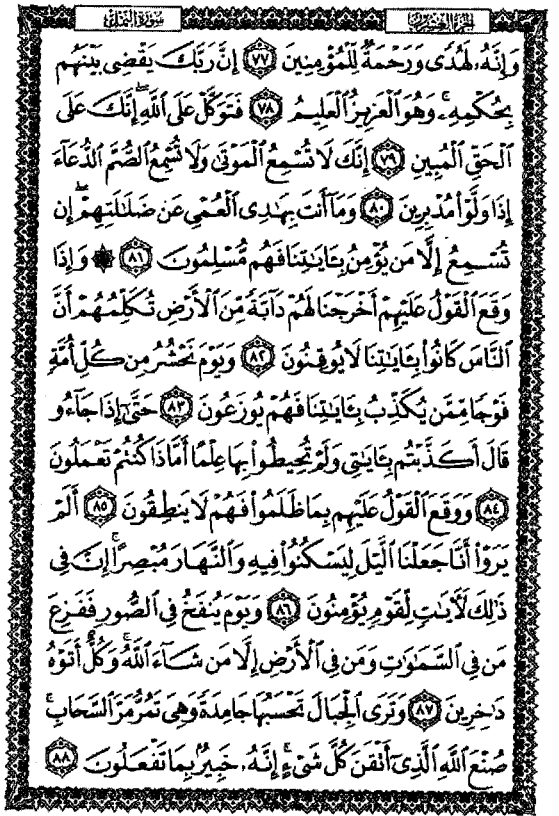 الجزء العشرون
سورة النمل
وَإِنَّهُۥ لَهُدًى وَرَحْمَةٌ لِّلْمُؤْمِنِينَ ٧٧ إِنَّ رَبَّكَ يَقْضِى بَيْنَهُم
بِحُكْمِهِۦ ۚ وَهُوَ ٱلْعَزِيزُ ٱلْعَلِيمُ ٧٨ فَتَوَكَّلْ عَلَى ٱللَّهِ ۖ إِنَّكَ عَلَى
ٱلْحَقِّ ٱلْمُبِينِ ٧٩ إِنَّكَ لَا تُسْمِعُ ٱلْمَوْتَىٰ وَلَا تُسْمِعُ ٱلصُّمَّ ٱلدُّعَآءَ
إِذَا وَلَّوْا۟ مُدْبِرِينَ ٨٠ وَمَآ أَنتَ بِهَـٰدِى ٱلْعُمْىِ عَن ضَلَـٰلَتِهِمْ ۖ إِن
تُسْمِعُ إِلَّا مَن يُؤْمِنُ بِـَٔايَـٰتِنَا فَهُم مُّسْلِمُونَ ٨١ ۞ وَإِذَا
وَقَعَ ٱلْقَوْلُ عَلَيْهِمْ أَخْرَجْنَا لَهُمْ دَآبَّةً مِّنَ ٱلْأَرْضِ تُكَلِّمُهُمْ أَنَّ
ٱلنَّاسَ كَانُوا۟ بِـَٔايَـٰتِنَا لَا يُوقِنُونَ ٨٢ وَيَوْمَ نَحْشُرُ مِن كُلِّ أُمَّةٍ
فَوْجًا مِّمَّن يُكَذِّبُ بِـَٔايَـٰتِنَا فَهُمْ يُوزَعُونَ ٨٣ حَتَّىٰٓ إِذَا جَآءُو
قَالَ أَكَذَّبْتُم بِـَٔايَـٰتِى وَلَمْ تُحِيطُوا۟ بِهَا عِلْمًا أَمَّاذَا كُنتُمْ تَعْمَلُونَ
٨٤ وَوَقَعَ ٱلْقَوْلُ عَلَيْهِم بِمَا ظَلَمُوا۟ فَهُمْ لَا يَنطِقُونَ ٨٥ أَلَمْ
يَرَوْا۟ أَنَّا جَعَلْنَا ٱلَّيْلَ لِيَسْكُنُوا۟ فِيهِ وَٱلنَّهَارَ مُبْصِرًا ۚ إِنَّ فِى
ذَٰلِكَ لَـَٔايَـٰتٍ لِّقَوْمٍ يُؤْمِنُونَ ٨٦ وَيَوْمَ يُنفَخُ فِى ٱلصُّورِ فَفَزِعَ
مَن فِى ٱلسَّمَـٰوَٰتِ وَمَن فِى ٱلْأَرْضِ إِلَّا مَن شَآءَ ٱللَّهُ ۚ وَكُلٌّ أَتَوْهُ
دَٰخِرِينَ ٨٧ وَتَرَى ٱلْجِبَالَ تَحْسَبُهَا جَامِدَةً وَهِىَ تَمُرُّ مَرَّ ٱلسَّحَابِ ۚ
صُنْعَ ٱللَّهِ ٱلَّذِىٓ أَتْقَنَ كُلَّ شَىْءٍ ۚ إِنَّهُۥ خَبِيرٌۢ بِمَا تَفْعَلُونَ ٨٨